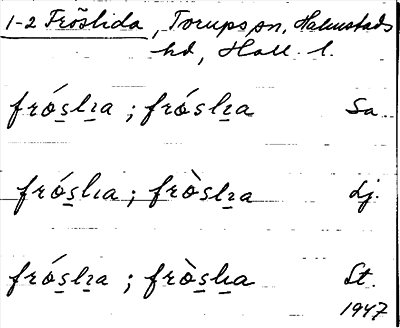 1-2 Fröslida, Torups sn, Halmstads
hd, Hall. l.
frósl̲ı̲a ; frósl̲ı̲a Sa
frósl̲ı̲a ; fròsl̲ı̲a Lj.
frósl̲ı̲a ; fròsl̲ı̲a St.
1947